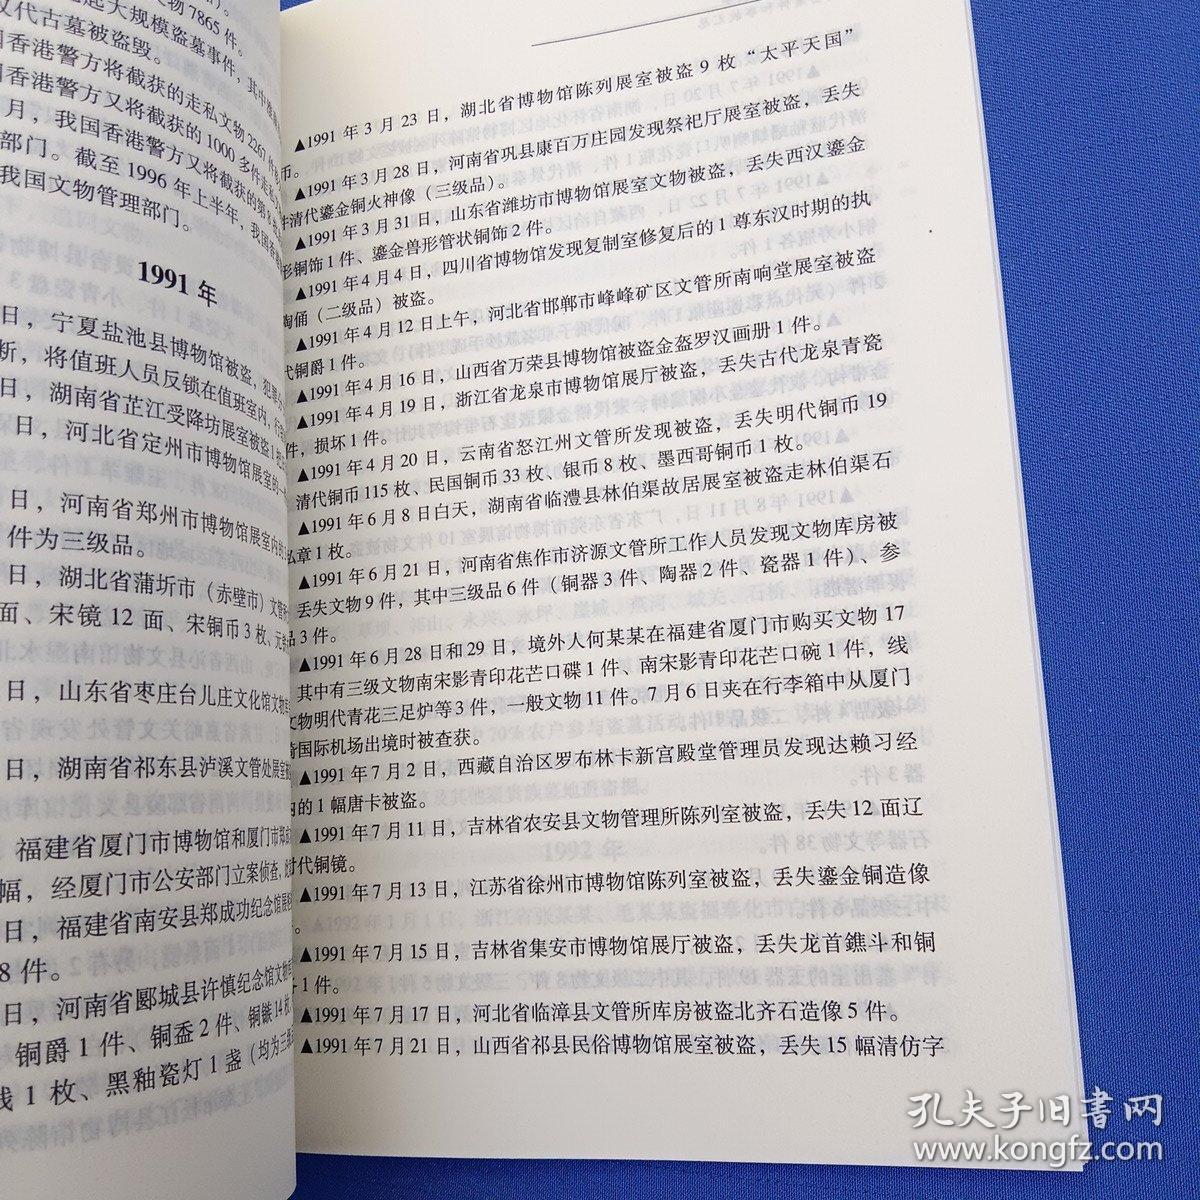 物 7865 件。
起大规模盗墓事件，其中
汉代古墓被盗毁。
国香港警方将截获的走私文物 2267 件
国香港警方又将截获的 1000 多件走私
月，我国香港警方又将截获的第 8 批
部门。截至 1996 年上半年，我国香港
我国文物管理部门。
1991 年
日，宁夏盐池县博物馆被盗，犯罪
断，将值班人员反锁在值班室内，
日，湖南省芷江受降坊展室被盗 1
日，河北省定州市博物馆展室的一
日，河南省郑州市博物馆展室内的
件为三级品。
日，湖北省蒲圻市（赤壁市）文管所
面、宋镜 12 面、宋铜币 3 枚、元
日，山东省枣庄台儿庄文化馆文物
日，湖南省祁东县泸溪文管处展室
福建省厦门市博物馆和厦门市郑
幅，经厦门市公安部门立案侦查，
日，福建省南安县郑成功纪念馆展
8 件。
日，河南省郾城县许慎纪念馆文物
铜爵 1 件、铜盉 2 件、铜镞 14 枚
钱 1 枚、黑釉瓷灯 1 盏（均为三级
▲1991 年 3 月 23 日，湖北省博物馆陈列展室被盗 9 枚“太平天国”
币。
▲1991 年 3 月 28 日，河南省巩县康百万庄园发现祭祀厅展室被盗，丢失
件清代鎏金铜火神像（三级品）。
▲1991 年 3 月 31 日，山东省潍坊市博物馆展室文物被盗，丢失西汉鎏金
形铜饰 1 件、鎏金兽形管状铜饰 2 件。
▲1991 年 4 月 4 日，四川省博物馆发现复制室修复后的 1 尊东汉时期的执
陶俑（二级品）被盗。
▲1991 年 4 月 12 日上午，河北省邯郸市峰峰矿区文管所南响堂展室被盗
代铜爵 1 件。
▲1991 年 4 月 16 日，山西省万荣县博物馆被盗金盔罗汉画册 1 件。
▲1991 年 4 月 19 日，浙江省龙泉市博物馆展厅被盗，丢失古代龙泉青瓷
件，损坏 1 件。
▲1991 年 4 月 20 日，云南省怒江州文管所发现被盗，丢失明代铜币 19
清代铜币 115 枚、民国铜币 33 枚、银币 8 枚、墨西哥铜币 1 枚。
▲1991 年 6 月 8 日白天，湖南省临澧县林伯渠故居展室被盗走林伯渠石
私章 1 枚。
▲1991 年 6 月 21 日，河南省焦作市济源文管所工作人员发现文物库房被
丢失文物 9 件，其中三级品 6 件（铜器 3 件、陶器 2 件、瓷器 1 件）、参
品 3 件。
▲1991 年 6 月 28 日和 29 日，境外人何某某在福建省厦门市购买文物 17
其中有三级文物南宋影青印花芒口碟 1 件、南宋影青印花芒口碗 1 件，线
文物明代青花三足炉等 3 件，一般文物 11 件。7 月 6 日夹在行李箱中从厦门
国际机场出境时被查获。
▲1991 年 7 月 2 日，西藏自治区罗布林卡新宫殿堂管理员发现达赖习经
内的 1 幅唐卡被盗。
▲1991 年 7 月 11 日，吉林省农安县文物管理所陈列室被盗，丢失 12 面辽
时代铜镜。
▲1991 年 7 月 13 日，江苏省徐州市博物馆陈列室被盗，丢失鎏金铜造像
▲1991 年 7 月 15 日，吉林省集安市博物馆展厅被盗，丢失龙首鐎斗和铜
1 件。
▲1991 年 7 月 17 日，河北省临漳县文管所库房被盗北齐石造像 5 件。
▲1991 年 7 月 21 日，山西省祁县民俗博物馆展室被盗，丢失 15 幅清仿字
孔夫子旧书网
www.kongfz.com